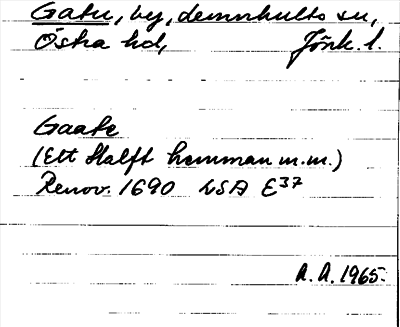 Gatu, by, Lemnhults sn,
Östra hd, Jönk. l.
Gaate
(Ett Halft hemman m.m.)
Renov. 1690 LSA E37
A. A. 1965.